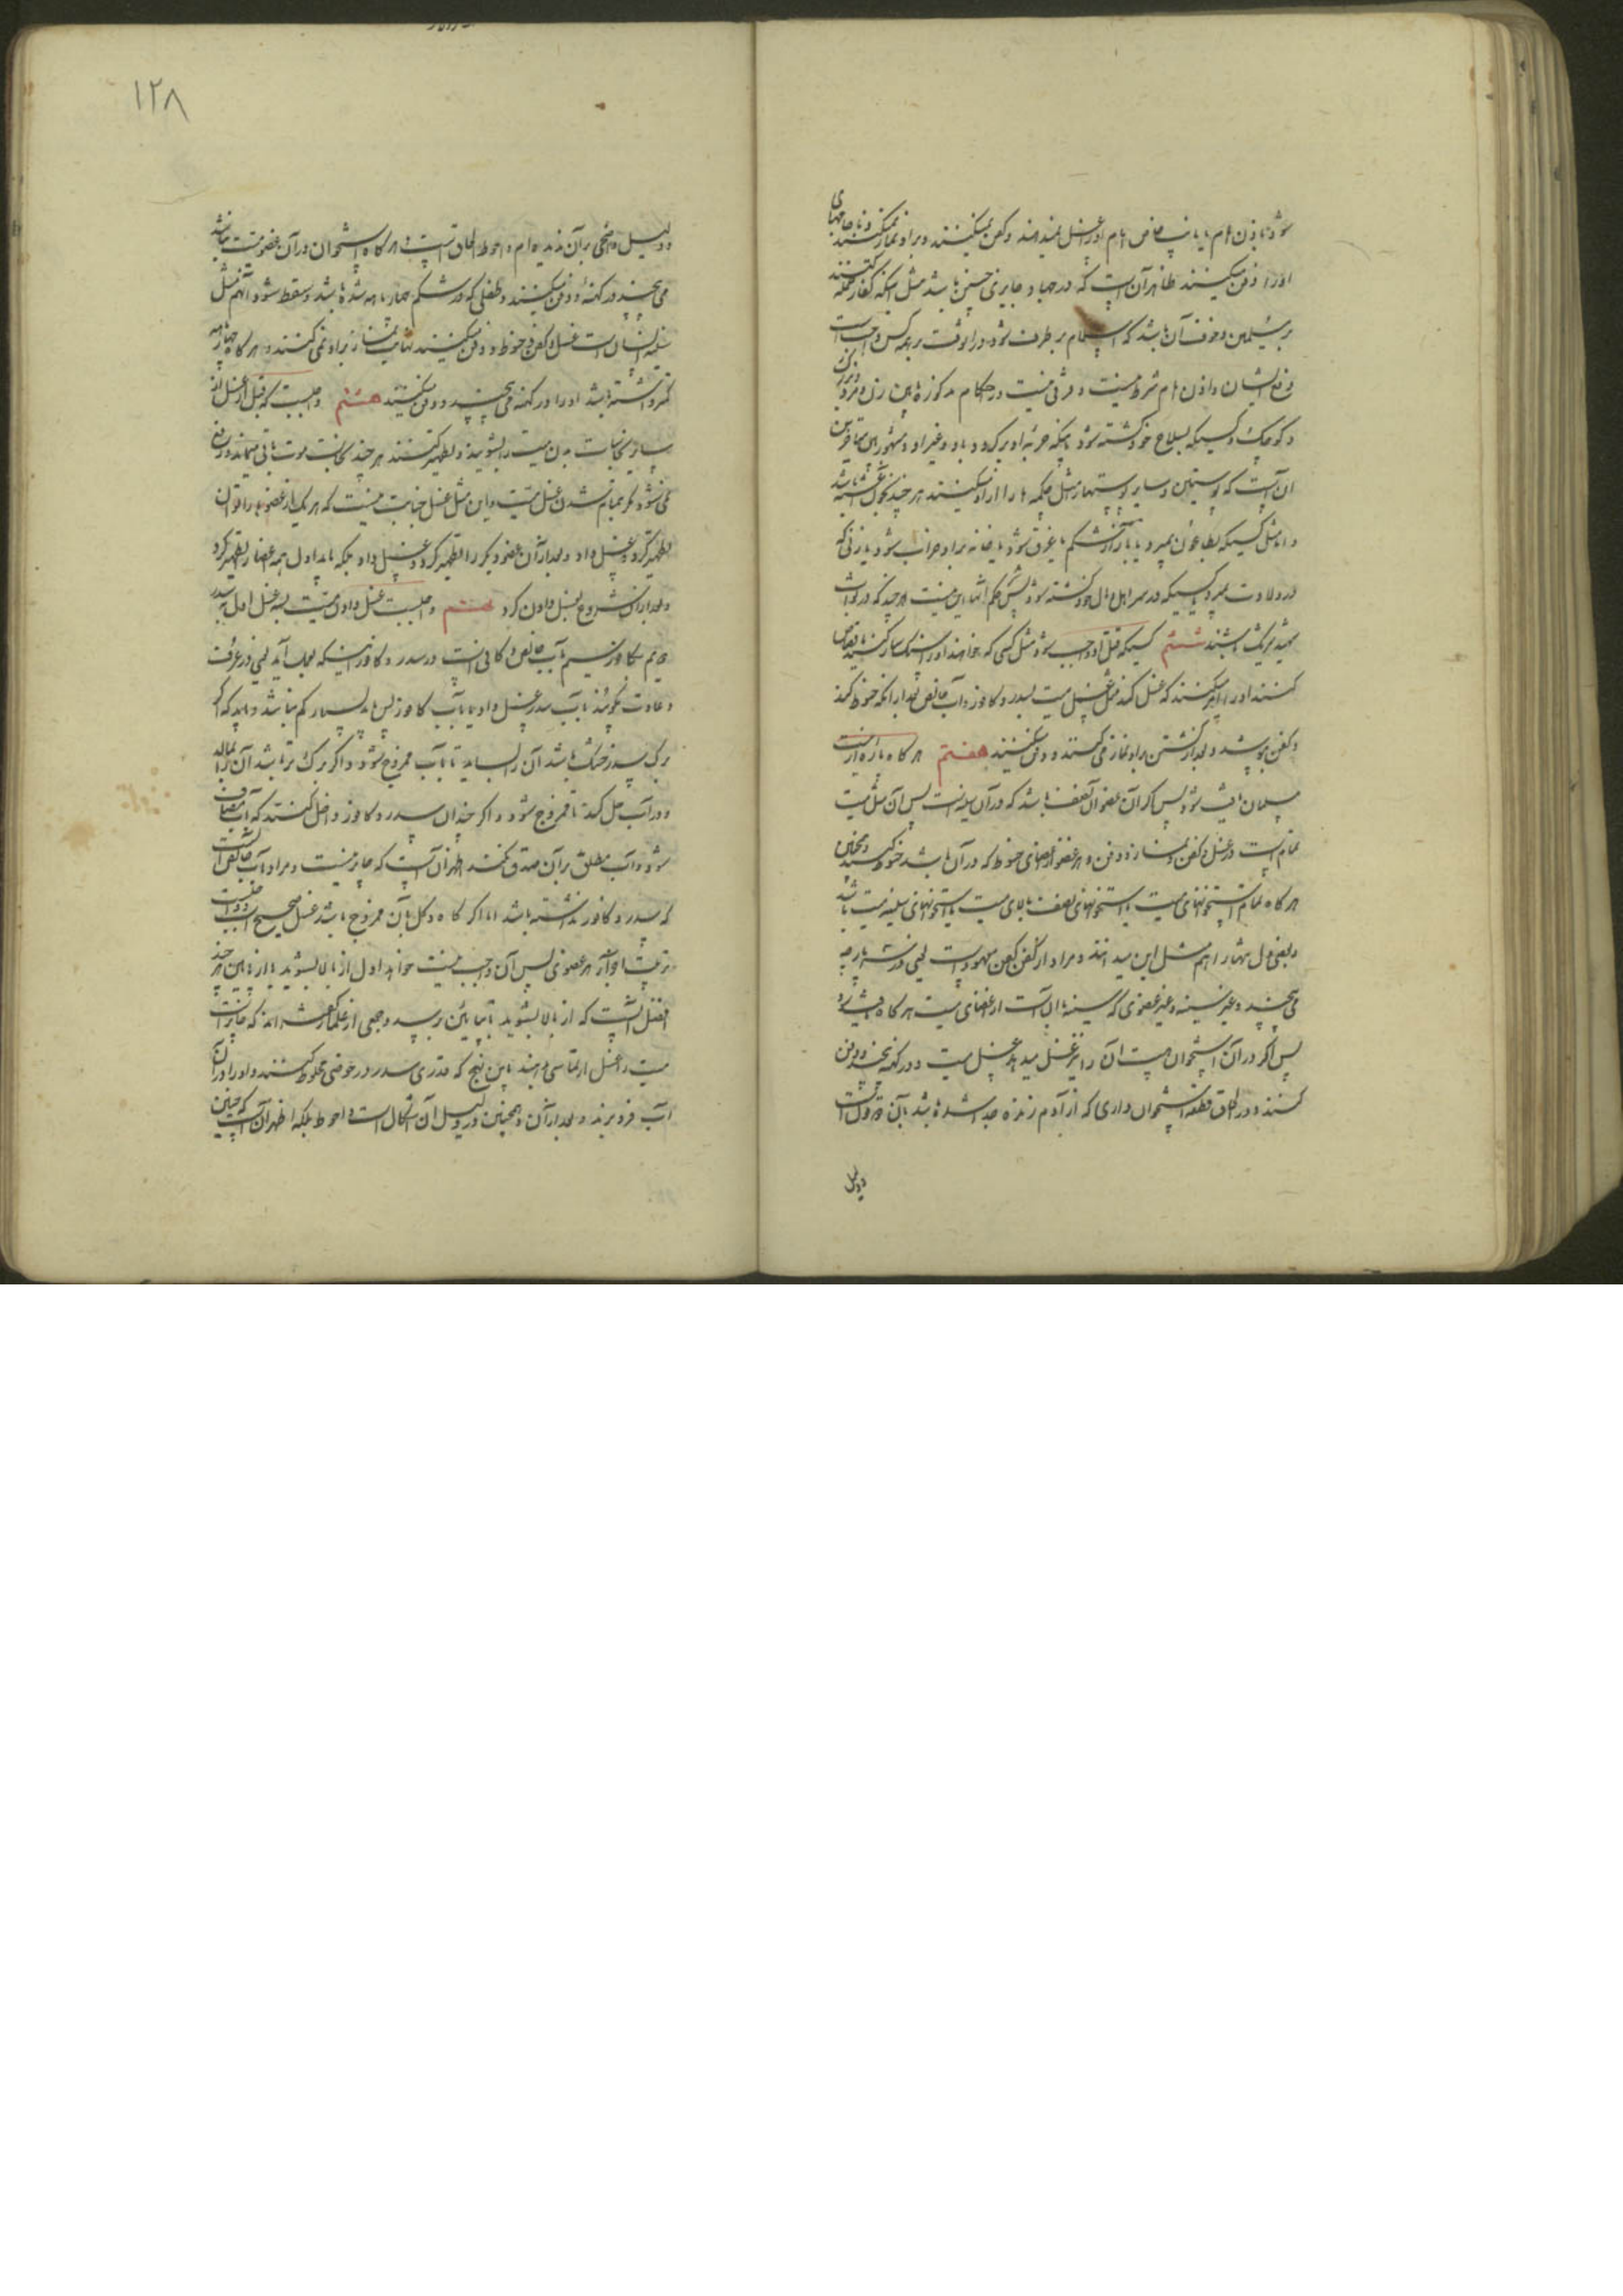 شود باذن امام یا نایب خاص امام او را غسل نمیدهند و کفن نمیکنند و بر او نماز میکنند و با جامهای
او را دفن میکنند ظاهر آن است که در جهاد جایزی چنین باشد مثل اینکه کفار حمله کنند
بر مسلمین و خوف آن باشد که اسلام بر طرف شود در آنوقت بر همه کس واجب است
دفع ایشان و اذن امام شرط نیست و فرقی نیست در احکام مذکوره میان زن و مرد و بزرگ
و کوچک و کسیکه بسلاح خود کشته شود یا اینکه حربه او برگردد باو و غیر او و مشهور میان متاخرین
آن است که پوستین و سایر پوستها مثل چکمه را از او میکنند هر چند بخون آغشته باشد
و اما مثل کسیکه بطاعون بمیرد یا بازار شکم یا غرق شود یا خانه بر او خراب شود یا زنی که
در ولادت بمیرد یا کسیکه در سر اهل و مال خود کشته شود پس حکم اینها این نیست هر چند که در ثواب
شهید شریک باشند ششم کسیکه قتل او واجب شود مثل کسی که خواهند او را سنگسار کنند یا قصاص
کنند او را امر میکنند که غسل کند مثل غسل میت بسدر و کافور و آب خالص بعد از آنکه حنوط کند
و کفن بپوشد و بعد از کشتن بر او نماز میکنند و دفن میکنند هفتم هر گاه پاره از میت
مسلمان یافت شود پس اگر آن عضو آن نصف باشد که در آن سینه است پس آن مثل میت
تمام است در غسل و کفن و نماز و دفن و هر عضو از اعضای حنوط که در آن باشد حنوط کنند و همچنین
هر گاه تمام استخوانهای میت یا استخوانهای نصف بالای میت یا استخوانهای سینه میت باشد
و بعضی دل تنها را هم مثل این میدانند و مراد از کفن کفن معهود است یعنی در سه پارچه
می پیچند و غیر سینه و غیر عضوی که سینه با آن است از اعضای میت هر گاه یافت شود
پس اگر در آن استخوان هست آن را نیز غسل میدهند مثل غسل میت و در کهنه پیچند و دفن
کنند و در الحاق قطعه استخوان داری که از آدم زنده جدا شده باشد بآن دو قول است
و دلیل
١٢٨
و دلیل واضحی بر آن ندیده ام و احوط الحاق است و هر گاه استخوان در آن عضو میت نباشد
می پیچند در کهنه و دفن میکنند و طفلی که در شکم چهار ماهه شده باشد و سقط شود آنهم مثل
بقیه انسان است غسل و کفن و حنوط و دفن میکنند نهایت نماز بر او نمی کنند و هر گاه چهار ماهه
کمتر داشته باشد او را در کهنه می پیچند و دفن میکنند هشتم واجبست که قبل از غسل از
سایر نجاسات بدن میت را بشویند و تطهیر کنند هر چند نجاست موت باقی میماند و زایل
نمی شود مگر بتمام شدن غسل میت و این مثل غسل جنابت نیست که هر یک از عضوها را توان
تطهیر کرد و غسل داد و بعد از آن عضو دیگر را تطهیر کرد و غسل داد بلکه باید اول همه اعضا را تطهیر کرد
و بعد از آن شروع بغسل دادن کرد هشتم واجبست غسل دادن میت بسه غسل اول بآب سدر
دویم بکافور سیم بآب خالص و کافی است در سدر و کافور اینکه بعمل آید یعنی در عرف
و عادت بگویند بآب سدر غسل داد یا بآب کافور پس باید بسیار کم نباشد و باید که اگر
برگ سدر خشک باشد آن را بسایند تا بآب ممزوج شود و اگر برگ تر باشد آن را بمالد
و در آب حل کند تا ممزوج شود و اگر چندان سدر و کافور داخل کنند که آب مضاف
شود و آب مطلق بر آن صدق نکند اظهر آن است که جایز نیست و مراد بآب خالص آنست
که سدر و کافور نداشته باشد اما اگر کاه و گل بآن ممزوج باشد غسل صحیح است و واجبست
ترتیب اما در هر عضوی پس آن واجب نیست خواه اول از بالا بشوید یا از پایین هر چند
افضل آنست که از بالا بشوید تا بپایین برسد و جمعی از علما گفته اند که جایز است
میت را غسل ارتماسی دهند باین نهج که قدری سدر در حوضی مخلوط کنند و او را در آن
آب فرو برند و بعد از آن و همچنین در دلیل آن اشکال است و احوط بلکه اظهر آن است که چنین